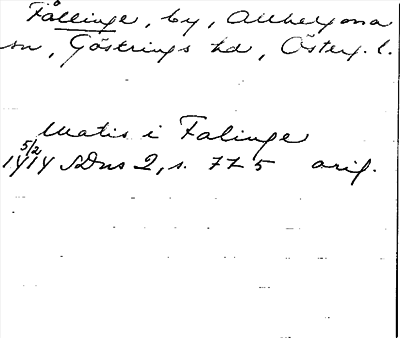 Fållinge, by, Allhelgona
sn, Göstrings hd, Österg. l.
Matis i Falinge
5/2
1414 SDns 2, s. 725 orig.